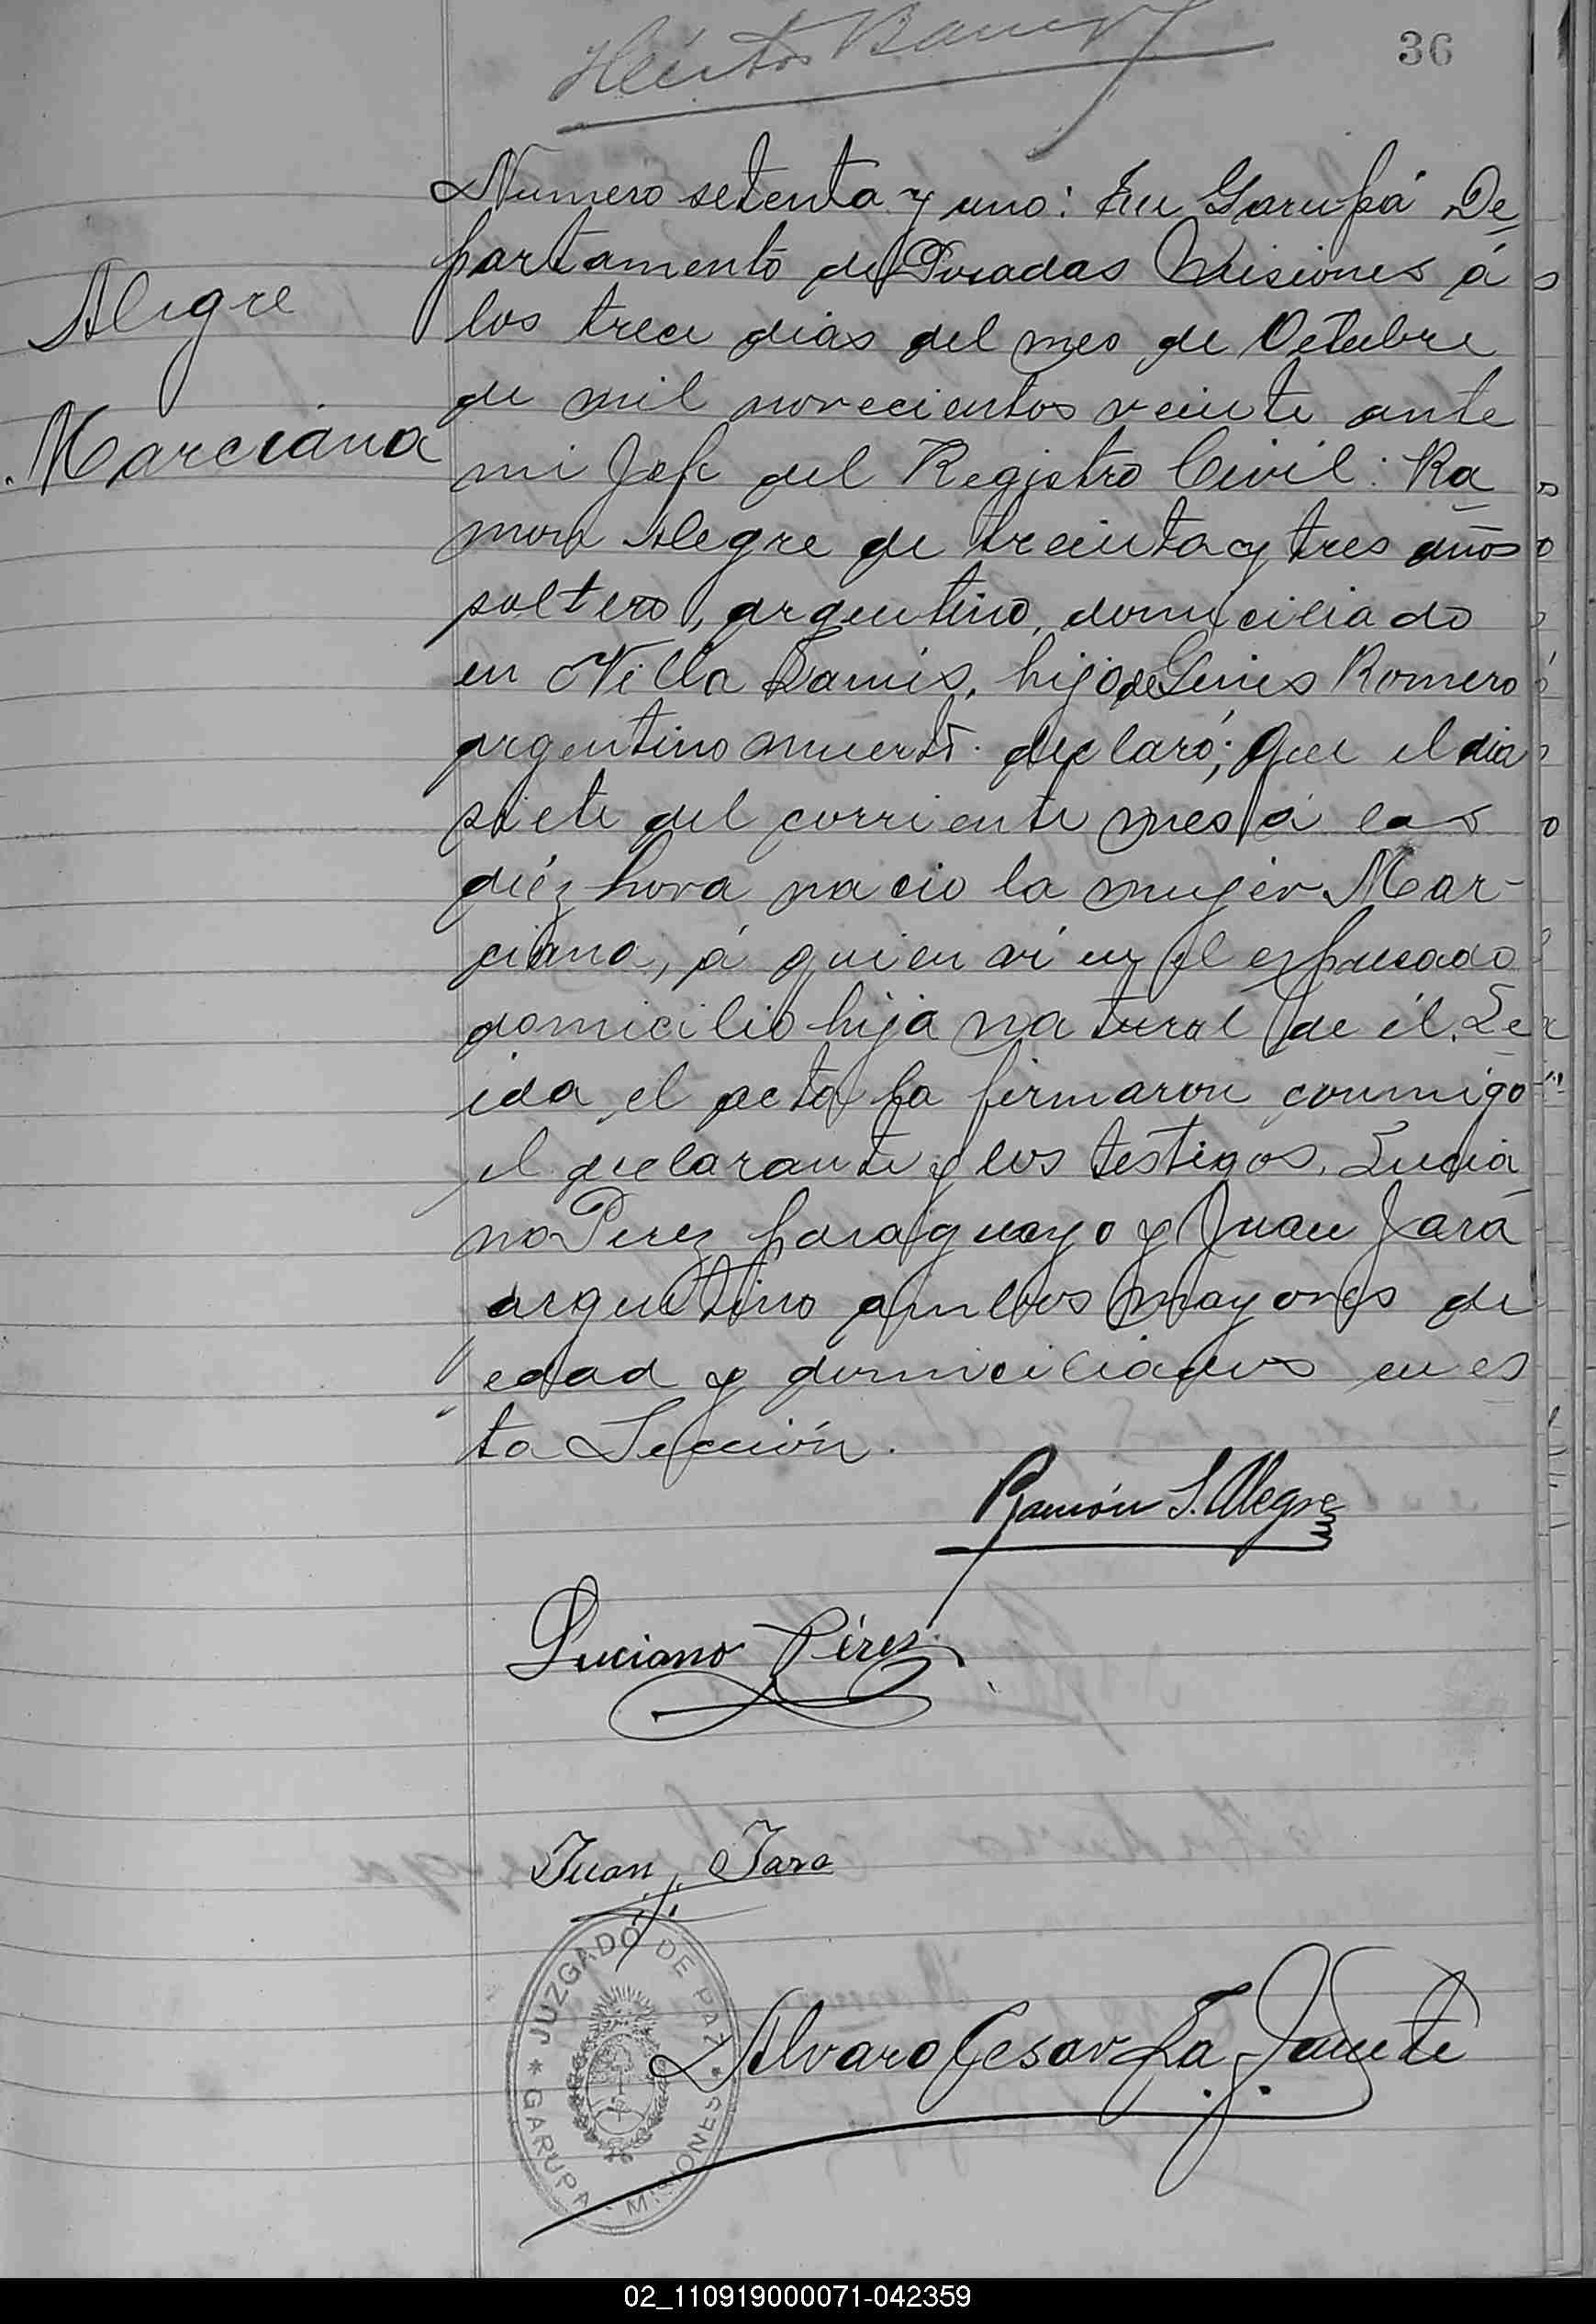 36
Alegre
Marciana
Numero setenta y uno: En Garupá De
partamento de Posadas Misiones á
los trece dias del mes de Octubre
de mil novecientos veinte ante
mi Jefe del Registro Civil: Ra
mon Alegre de treinta y tres años
soltero, argentino, domiciliado
en Villa Lanús, hijo de Gines Romero
argentino muerto. declaró; Que el dia
siete del corriente mes á las
diéz hora nacio la mujer Mar-
ciana, á quien ví en el espresado
domicilio hija natural de él. Le
ida el acta la firmaron conmigo
el declarante y los testigos, Lucia
no Perez paraguayo y Juan Jara
argentino ambos mayores de
edad y domiciliados en es
ta Sección.
Ramón S. Alegre
Luciano Pérez
Juan Jara
JUZGADO DE PAZ
* GARUPA - MISIONES *
Alvaro Cesar La
02_110919000071-042359